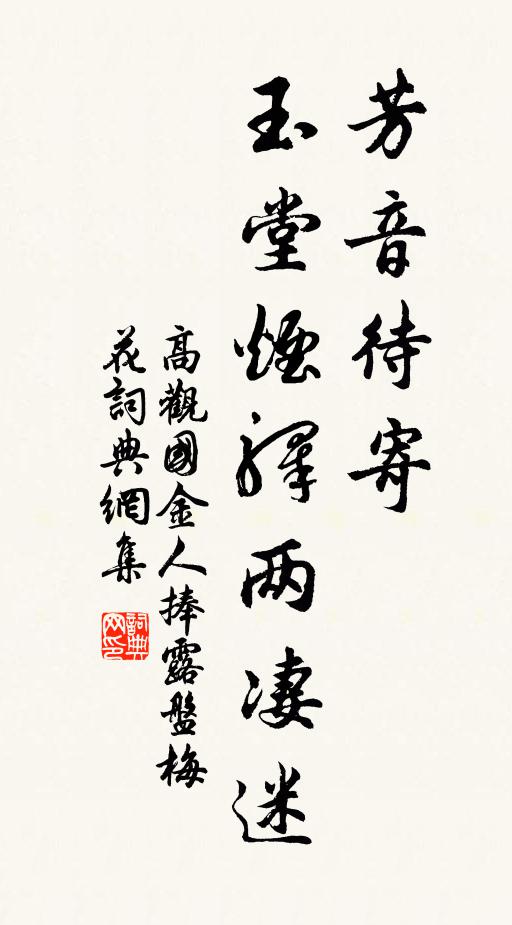 芳音待寄
玉堂煙驛两凄迷
高觀國金人捧露盤梅
花詞典網集
詞典
网印